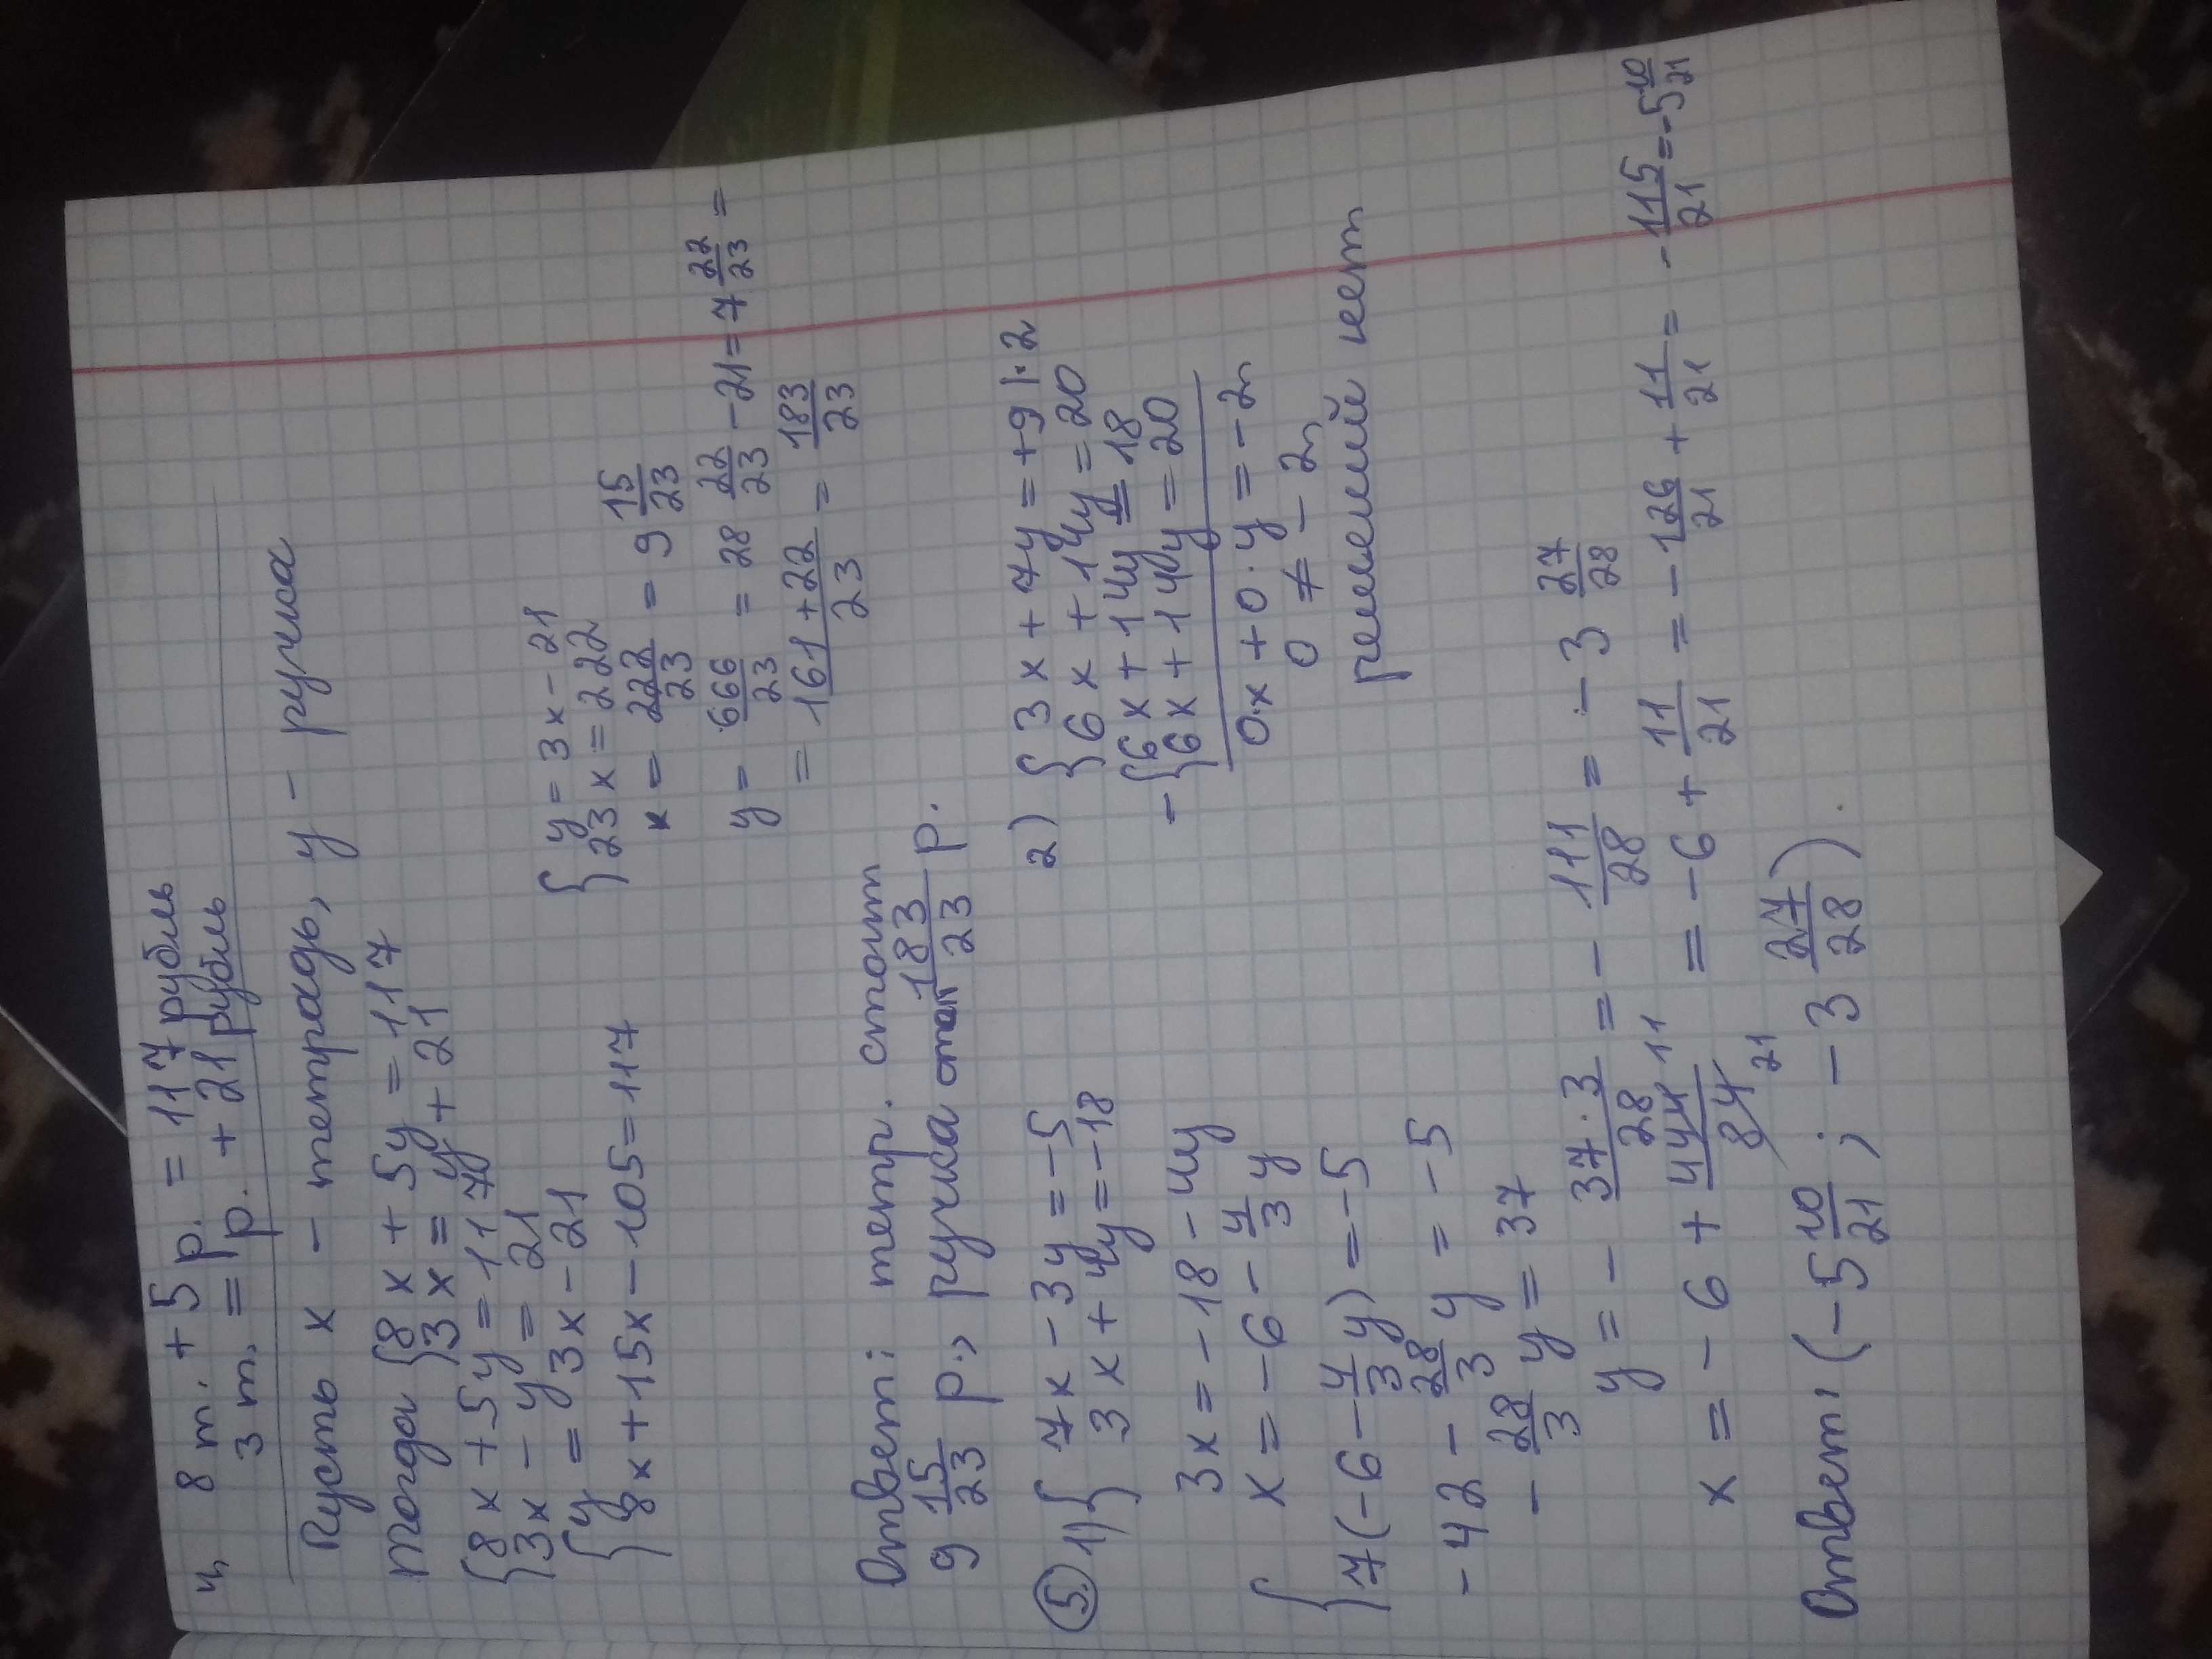 4, 8 т. + 5 р. = 117 рубль
3 т. = р. + 21 рубль
Пусть x – тетрадь, y – ручка
тогда { 8x + 5y = 117
3x = y + 21
{ 8x + 5y = 117
3x – y = 21
{ y = 3x – 21
8x + 15x – 105 = 117
{ y = 3x – 21
23x = 222
x = 222/23 = 9 15/23
y = 666/23 = 28 22/23 – 21 = 7 22/23 =
= 161+22/23 = 183/23
Ответ: тетр. стоит
9 15/23 р., ручка стоит 183/23 р.
5. 1) { 7x – 3y = –5
3x + 4y = –18
3x = –18 – 4y
{ x = –6 – 4/3 y
7(–6 – 4/3 y) = –5
–42 – 28/3 y = –5
– 28/3 y = 37
y = – 37·3/28 = – 111/28 = – 3 27/28
x = – 6 + 444 11/84 21 = –6 + 11/21 = – 126/21 + 11/21 = – 115/21 = –5 10/21
Ответ: (–5 10/21; –3 27/28).
2) { 3x + 7y = +9 |·2
6x + 14y = 20
– { 6x + 14y = 18
6x + 14y = 20
0·x + 0·y = –2
0 ≠ – 2
решений нет